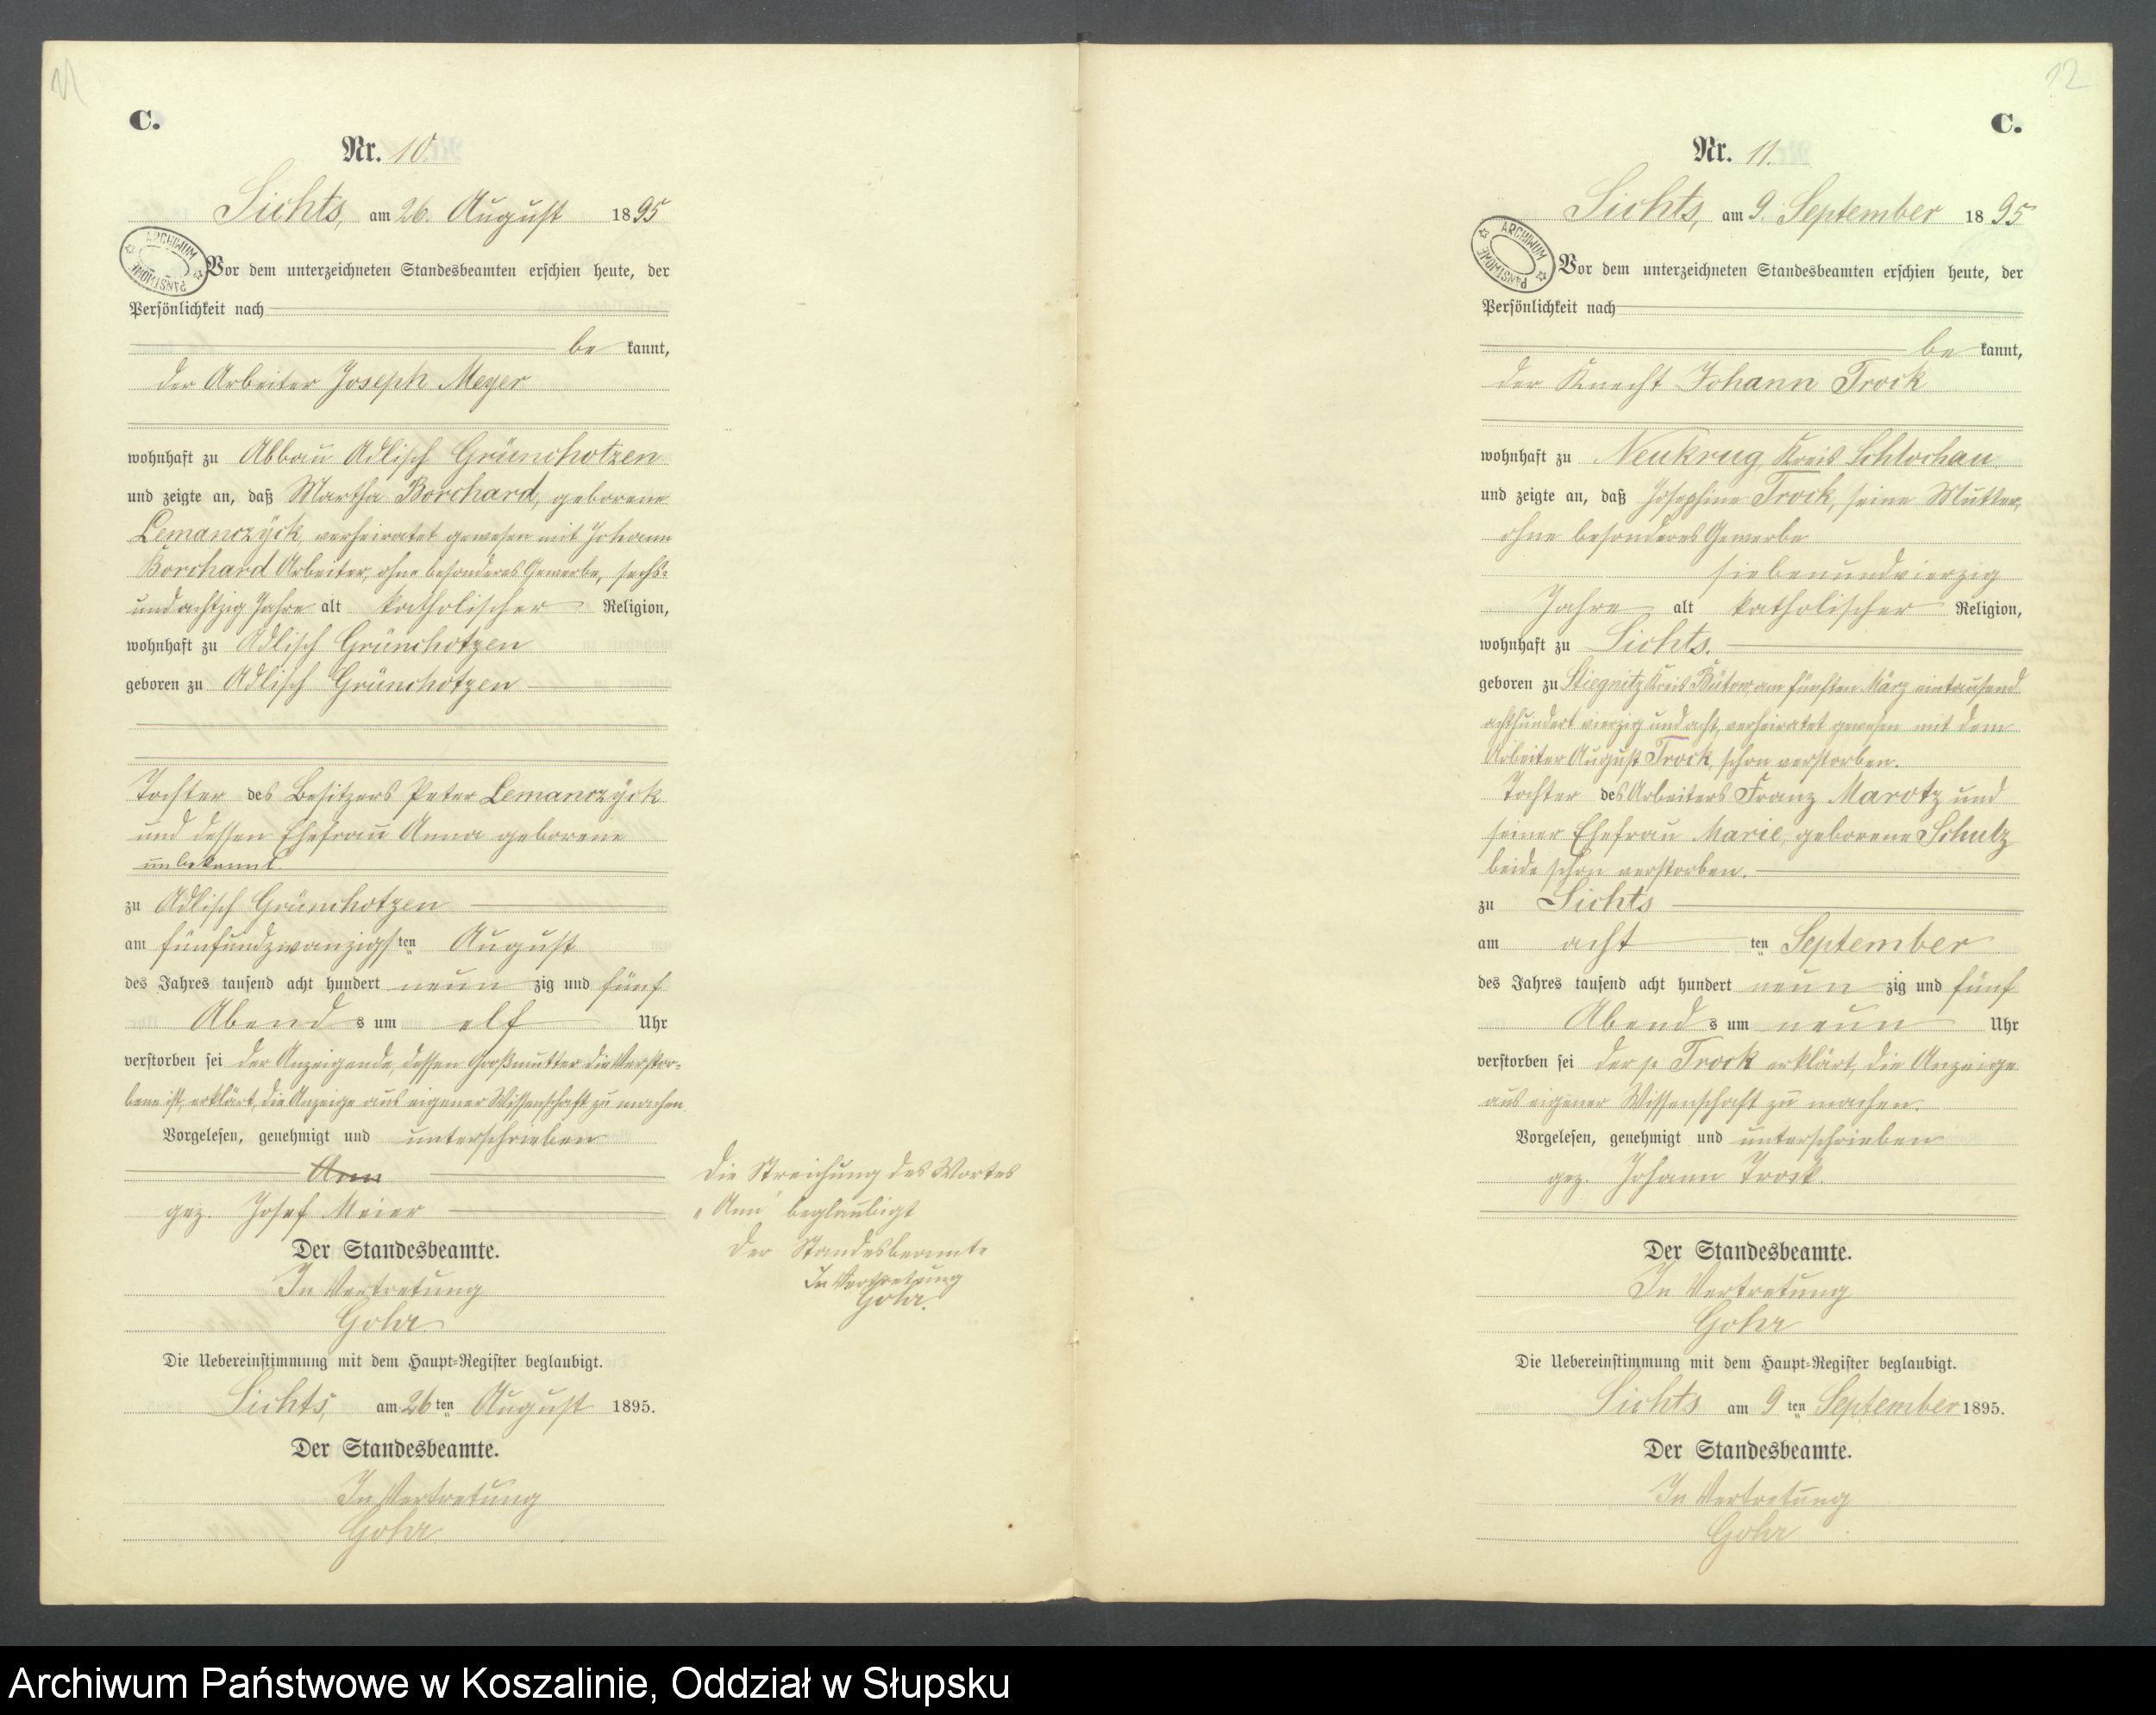 11
C.
Nr. 10.
Lichts, am 26. August 1895
ARCHIWUM PAŃSTWOWE
Vor dem unterzeichneten Standesbeamten erschien heute, der
Persönlichkeit nach
be kannt,
der Arbeiter Joseph Meyer
wohnhaft zu Abbau Adlisch Grünchotzen
und zeigte an, daß Martha Borchard, geborene
Lemanczÿck, verheiratet gewesen mit Johann
Borchard Arbeiter, ohne besonderes Gewerbe, sechs-
undachtzig Jahre alt katholischer Religion,
wohnhaft zu Adlisch Grünchotzen
geboren zu Adlisch Grünchotzen
Tochter des Besitzers Peter Lemanczÿck
und dessen Ehefrau Anna geborene
unbekannt.
zu Adlisch Grünchotzen
am fünfundzwanzigsten August
des Jahres tausend acht hundert neun zig und fünf
Abends um elf Uhr
verstorben sei der Anzeigende, dessen Großmutter die Verstor-
bene ist, erklärt, die Anzeige aus eigener Wissenschaft zu machen.
Vorgelesen, genehmigt und unterschrieben
Ann
gez. Josef Meier
Der Standesbeamte.
In Vertretung
Gohr
Die Uebereinstimmung mit dem Haupt-Register beglaubigt.
Lichts, am 26ten August 1895.
Der Standesbeamte.
In Vertretung
Gohr
Die Streichung des Wortes
„Ann" beglaubigt
Der Standesbeamte
In Vertretung
Gohr.
12
C.
Nr. 11.
Lichts, am 9. September 1895
ARCHIWUM PAŃSTWOWE
Vor dem unterzeichneten Standesbeamten erschien heute, der
Persönlichkeit nach
be kannt,
der Knecht Johann Trock
wohnhaft zu Neukrug, Kreis Schlochau
und zeigte an, daß Josephine Trock, seine Mutter,
ohne besonderes Gewerbe
siebenundvierzig
Jahre alt katholischer Religion,
wohnhaft zu Lichts.
geboren zu Stiegnitz Kreis Bütow, am fünften März eintausend
achthundert vierzig und acht, verheiratet gewesen mit dem
Arbeiter August Trock, schon verstorben.
Tochter des Arbeiters Franz Marotz und
seiner Ehefrau Marie, geborene Schulz
beide schon verstorben.
zu Lichts
am acht ten September
des Jahres tausend acht hundert neun zig und fünf
Abends um neun Uhr
verstorben sei der p. Trock erklärt, die Anzeige
aus eigener Wissenschaft zu machen.
Vorgelesen, genehmigt und unterschrieben
gez. Johann Trock.
Der Standesbeamte.
In Vertretung
Gohr
Die Uebereinstimmung mit dem Haupt-Register beglaubigt.
Lichts am 9ten September 1895.
Der Standesbeamte.
In Vertretung
Gohr
Archiwum Państwowe w Koszalinie, Oddział w Słupsku